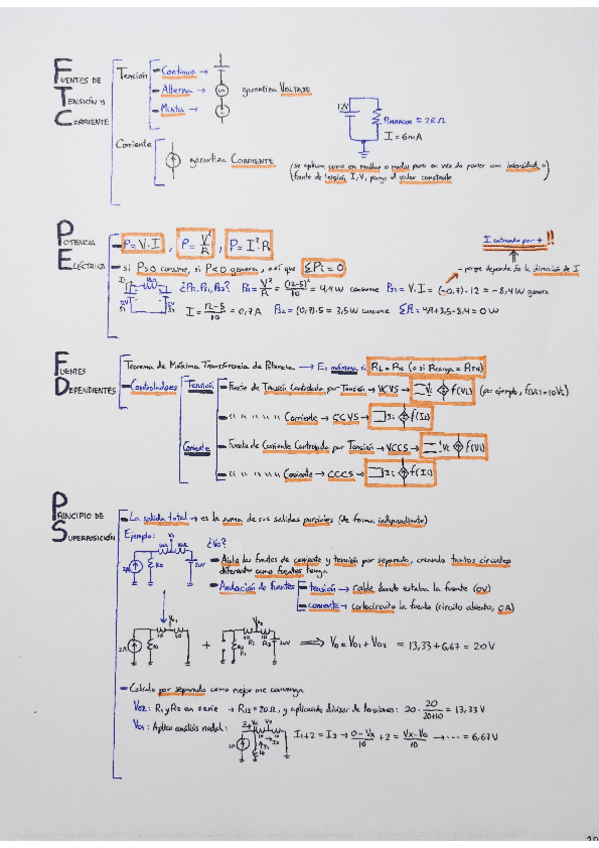 FUENTES DE TENSIÓN Y CORRIENTE
Tensión
Continua →
Alterna →
Mixta →
garantiza VOLTAJE
12V
= 2KΩ
I = 6mA
Corriente
garantiza CORRIENTE
(se aplican como en mallas o nudos pero en vez de poner una intensidad o
fuente de tensión I, V, pongo el valor constante)
POTENCIA ELÉCTRICA
P = V·I , P = V²/R , P = I²·R
I entrando por + !!
si P>0 consume, si P<0 genera, así que ΣPi = 0
- porque depende de la dirección de I
= V²/R = (12-5)²/10 = 4,9W consume
= V·I = (-0,7)·12 = -8,4W genera
I = (12-5)/10 = 0,7A
= (0,7)·5 = 3,5W consume
+3,5-8,4 = 0W
FUENTES DEPENDIENTES
Teorema de Máxima Transferencia de Potencia → Es máxima si
Controladores
Tensión
Fuente de Tensión Controlada por Tensión → VCVS →
f(Vi)
(por ejemplo, f(Vi)=10Vi)
" " " " " Corriente → CCVS →
Ii
f(Ii)
Corriente
Fuente de Corriente Controlada por Tensión → VCCS →
Vi
f(Vi)
" " " " " Corriente → CCCS →
Ii
f(Ii)
PRINCIPIO DE SUPERPOSICIÓN
La salida total → es la suma de sus salidas parciales (de forma independiente)
Ejemplo:
¿Vo?
Aislo las fuentes de corriente y tensión por separado, creando tantos circuitos
como fuentes tenga
Anulación de fuentes
tensión → cable donde estaba la fuente (0V)
corriente →
la fuente (circuito abierto, 0A)
2A
+
⟹ Vo = Vo1 + Vo2 = 13,33 + 6,67 = 20V
Calculo por separado como mejor me convenga
Vo2: R1 y R2 en serie → R12 = 20Ω, y aplicando divisor de tensiones: 20 · 20/(20+10) = 13,33V
Vo1: Aplico análisis nodal:
I1+2 = I2 → (0-Vx)/10 + 2 = (Vx-Vo)/10 → ····· = 6,67V